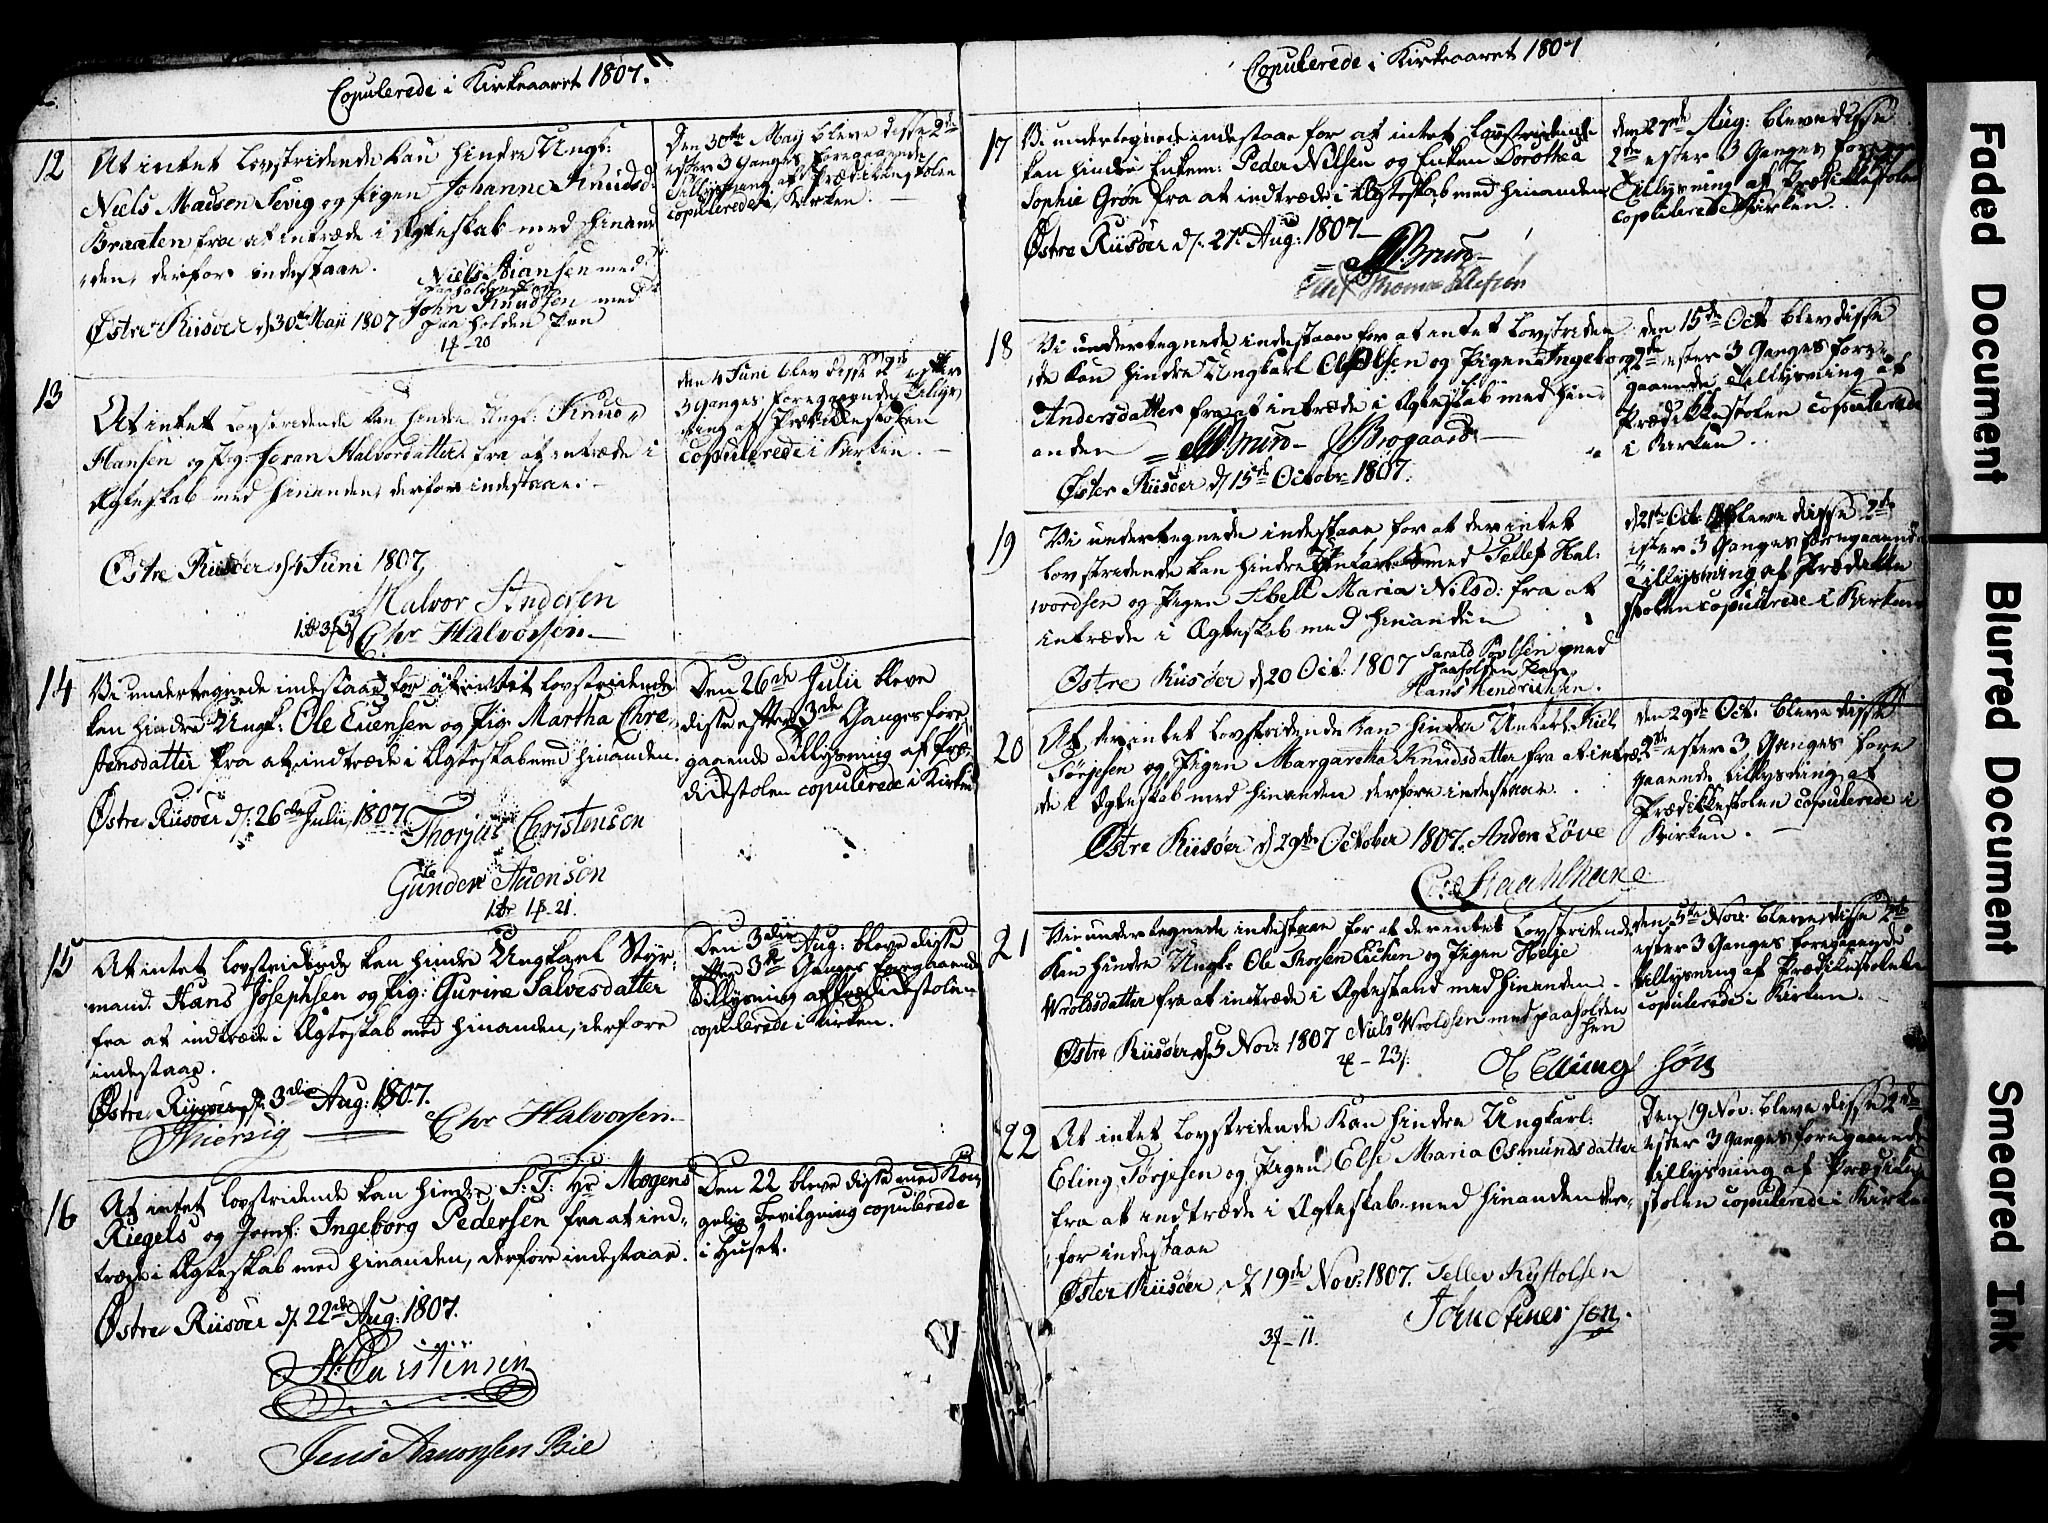 Copulerede i Kirkeaaret 1807.
12
At intet Lovstridende kan hindre Ungk:
Niels Madsen Sevig og Pigen Johanne Knudsd:
Braaten fra at intræde i Ægteskab med hinan
den, derfor indestaae.
Niels Stiansen med
paaholden Pen
John Knudsen med
paaholden Pen
Østre Riisøer d 30te Maji 1807
1 - 20
Den 30te Maij bleve disse 2de
efter 3 Ganges foregaaende
Tillysning af Prædikestolen
copulerede i Kirken.
13
At intet Lovstridende kan hindre Ungk: Knud
Hansen og Pig: Joran Halvorsdatter fra at intræde i
Ægteskab med hinanden, derfor indestaae.
Østre Riisøer d 4 Juni 1807
Halvor Andersen
Chr Halvorsen
den 4 Juni blev disse 2de efter
3 Ganges foregaaende Tillys
ning af Prædikestolen
copulerede i Kirken.
14
Vi undertegnede indestaae for at intet Lovstridende
kan hindre Ungk: Ole Evensen og Pig: Martha Chre
stensdatter fra at indtræde i Ægteskab med hinanden.
Østre Riisøer d: 26de Julii 1807.
Thorjus Christensen
Gunder Auensen
1 - 21.
Den 26de Julii bleve
disse efter 3de Ganges fore
gaaende Tillysning af Præ
dikestolen copulerede i Kirken
15
At intet Lovstridende kan hindre Ungkarl Styr
mand Hans Josephsen og Pig: Gurine Salvesdatter
fra at indtræde i Ægteskab med hinanden, derfore
indestaae.
Østre Riisøer d: 3die Aug: 1807.
Chr Halvorsen
Den 3die Aug: bleve disse
efter 3de Ganges foregaaende
Tillysning af Prædikestolen
copulerede i Kirken.
16
At intet Lovstridende kan hindre S. T. Hr Mogens
Riegels og Jomf: Ingeborg Pedersen fra at ind
træde i Ægteskab med hinanden, derfore indestaae.
Østre Riisøer d. 22de Aug: 1807.
Carstensen
Jens Aanonsen Bie
Den 22 bleve disse med Kon
gelig Bevilgning copulerede
i Huset.
Copulerede i Kirkeaaret 1807
17
Vi undertegnede indestaae for at intet Lovstridende
kan hindre Enkem: Peder Nilsen og Enken Dorothea
Sophie Grøn fra at indtræde i Ægteskab med hinanden
Østre Riisøer d. 27de Aug: 1807
Bruun
Thomas Ellefsen
den 27de Aug: bleve disse
2de efter 3 Ganges foregaaen
Tillysning af Prædikestolen
copulerede Kirken.
18
Vi undertegnede indestaae for at intet Lovstriden
de kan hindre Ungkarl Ole Olsen og Pigen Ingeborg
Andersdatter fra at intræde i Ægteskab med hin
anden
Bruun Brogaard
Øster Riisøer d 15de Octobr 1807.
den 15de Oct blev disse
2de efter 3 Ganges fore
gaaende Tillysning af
Prædikkestolen copulerede
i Kirken.
19
Vi undertegnede indestaae for at der intet
Lovstridende kan hindre Tellef Hal
vordsen og Pigen Abell Maria Nilsd: fra at
intræde i Ægteskab med hinanden
Østre Riisøer d 20 Oct. 1807
med
paaholden Pen
Hans Hendrichsen.
d 21de Oct: bleve disse 2de
efter 3 Ganges foregaaende
Tillysning af Prædikke
stolen copulerede i Kirken
20
At der intet Lovstridende kan hindre Unkarl
Tørjesen og Pigen Margaretha Knudsdatter fra at intræ
de i Ægteskab med hinanden derfore indestaae.
Østre Riisøer d 29de October 1807. Anders Løve
Staahlhane
den 29de Oct. bleve disse
2de efter 3 Ganges fore
gaaende Tillysning af
Prædikkestolen copulerede i
Kirken.
21
Vi undertegnede indestaae for at der intet Lovstridende
kan hindre Ungk: Ole Thorsen og Pigen Helje
Wroldsdatter fra at indtræde i Ægtestand med hinanden.
Østre Riisøer d. 5 Nov: 1807 Niels Wroldsen med paaholden
Pen
- 23
O Ellingsøn
den 5te Nov: bleve disse 2de
efter 3 Ganges foregaaende
Tillysning af Prædikestolen
copulerede i Kirken.
22
At intet Lovstridende kan hindre Ungkarl:
Eling Tørjesen og Pigen Else Maria Osmundsdatter
fra at indtræde i Ægteskab med hinanden der
for indestaae
Øster Riisøer d 19de Nov: 1807. Tellev Kystolsen
John Steener son.
3 - 11.
Den 19 Nov: bleve disse 2de
efter 3 Ganges foregaaende
Tillysning af Prædike
stolen copulerede i Kirken
Faded Document
Blurred Document
Smeared Ink